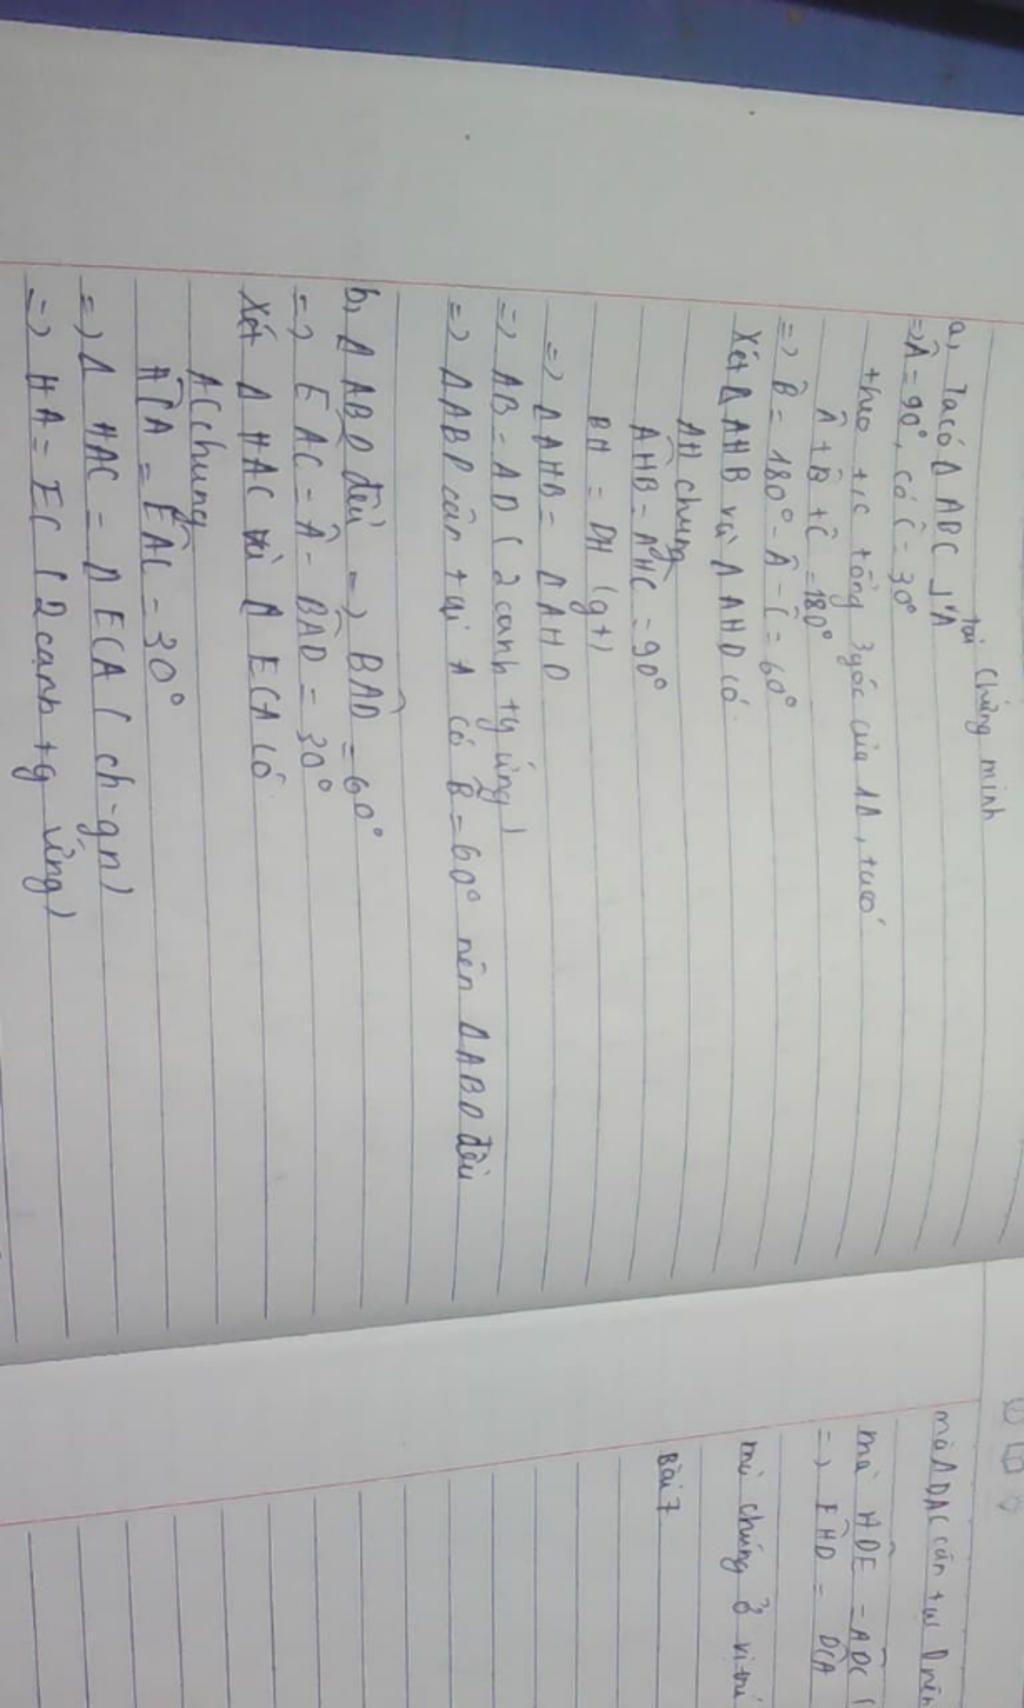 Chứng minh
a, Ta có Δ ABC ⊥ tại A
=> Â = 90°, có Ĉ = 30°
theo t/c tổng 3 góc của 1Δ, ta có
Â + B̂ + Ĉ = 180°
=> B̂ = 180° - Â - Ĉ = 60°
Xét Δ AHB và Δ AHD có
AH chung
AĤB = AĤC = 90°
BH = DH (gt)
=> Δ AHB = Δ AHD
=> AB = AD (2 cạnh tg ứng)
=> Δ ABD cân tại A có B̂ = 60° nên Δ ABD đều
b, Δ ABD đều => BÂD = 60°
=> EÂC = Â - BÂD = 30°
Xét Δ HAC và Δ ECA có
AC chung
HĈA = EÂC = 30°
=> Δ HAC = Δ ECA (ch-gn)
=> HA = EC (2 cạnh tg ứng)
mà Δ DAC cân tại D nên
mà HD̂E = AD̂C (
=> EĤD = DĈA
mà chúng ở vị trí
Bài 7